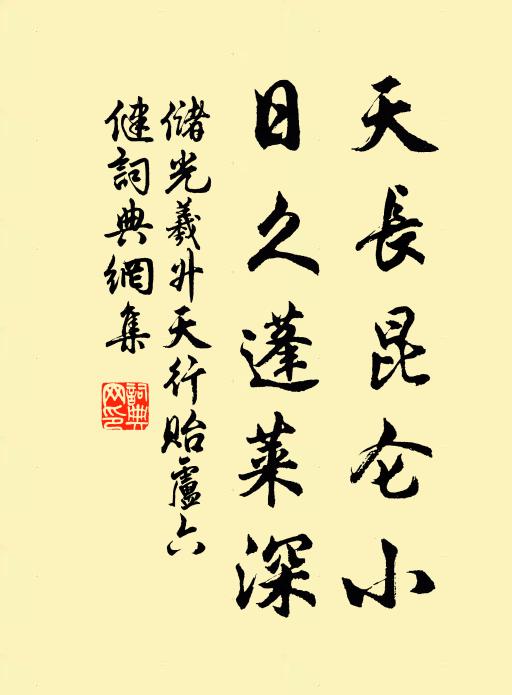 天長昆仑小
日久蓬萊深
儲光羲升天行貽盧六
健詞典網集
詞典
网印